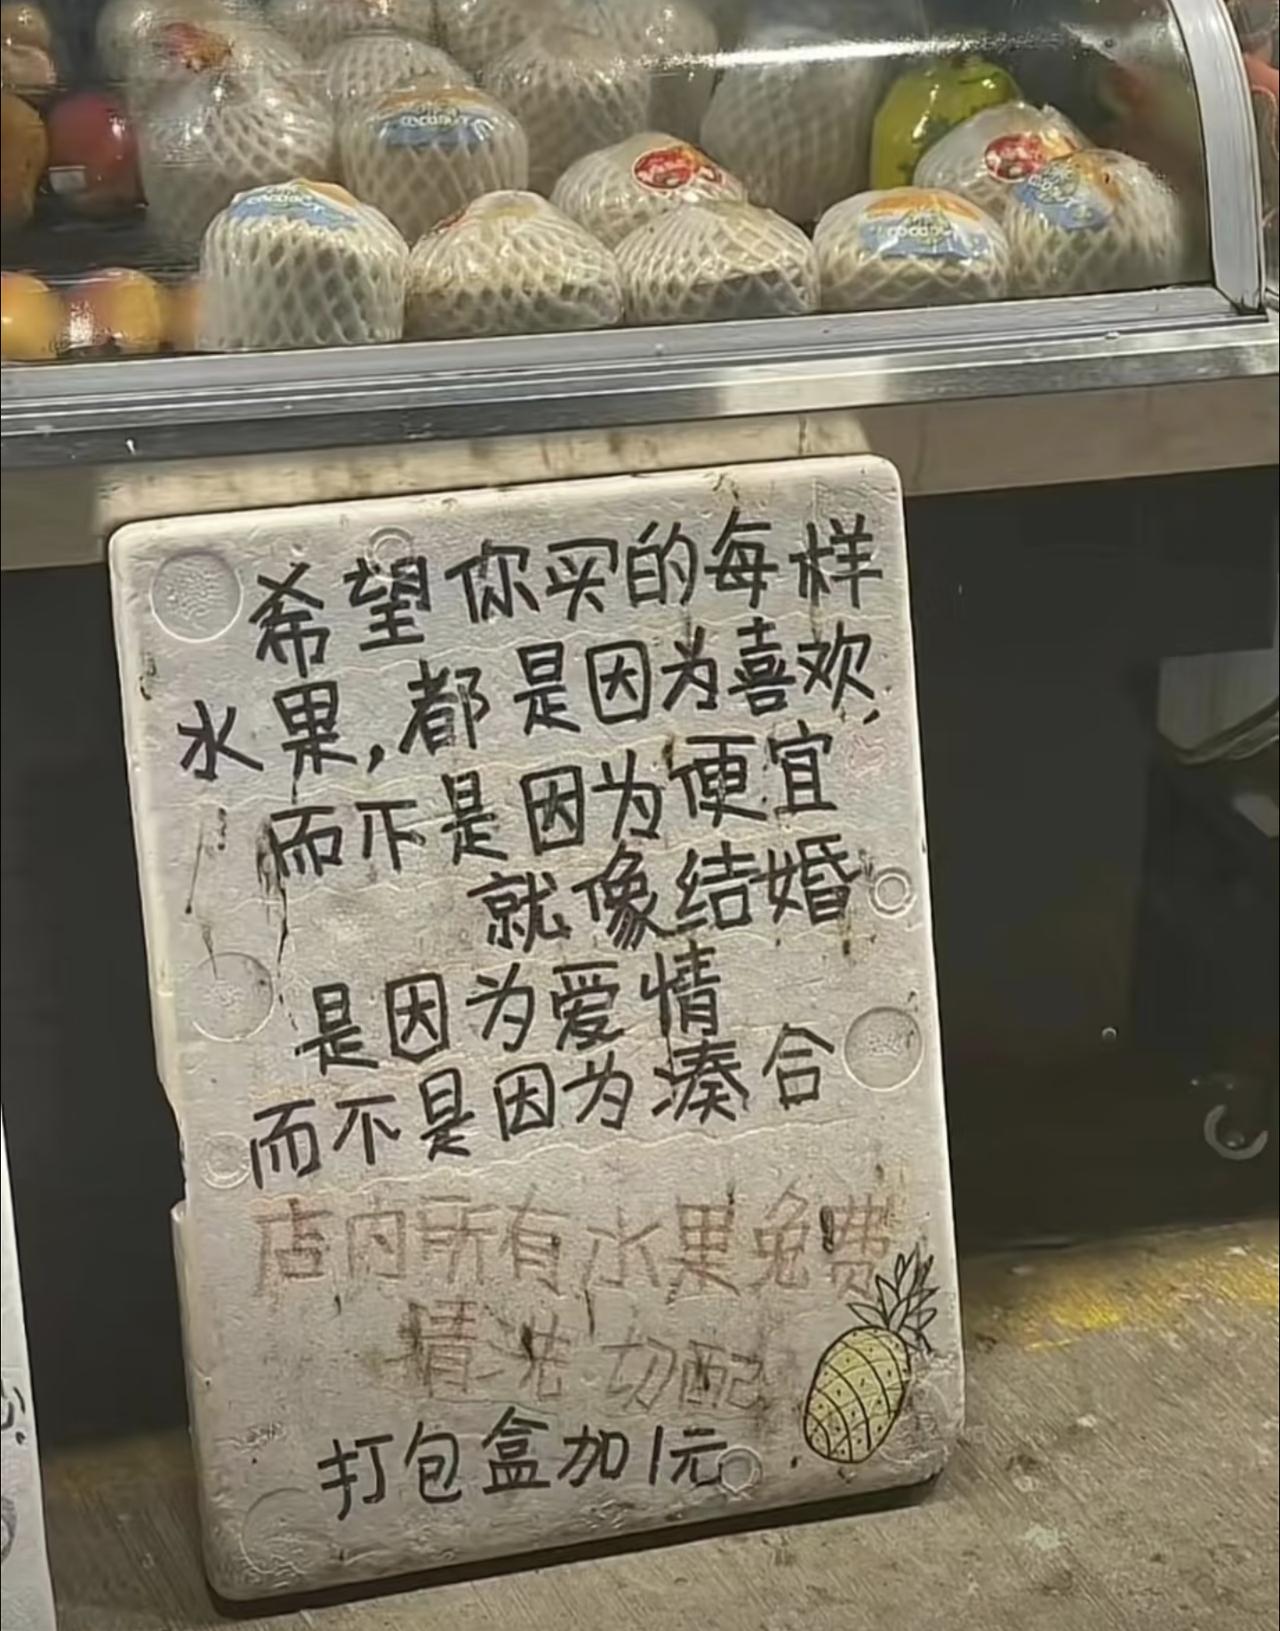 希望你买的每样
水果,都是因为喜欢
而不是因为便宜
就像结婚
是因为爱情
而不是因为凑合
店内所有水果免费
清洗切配
打包盒加1元